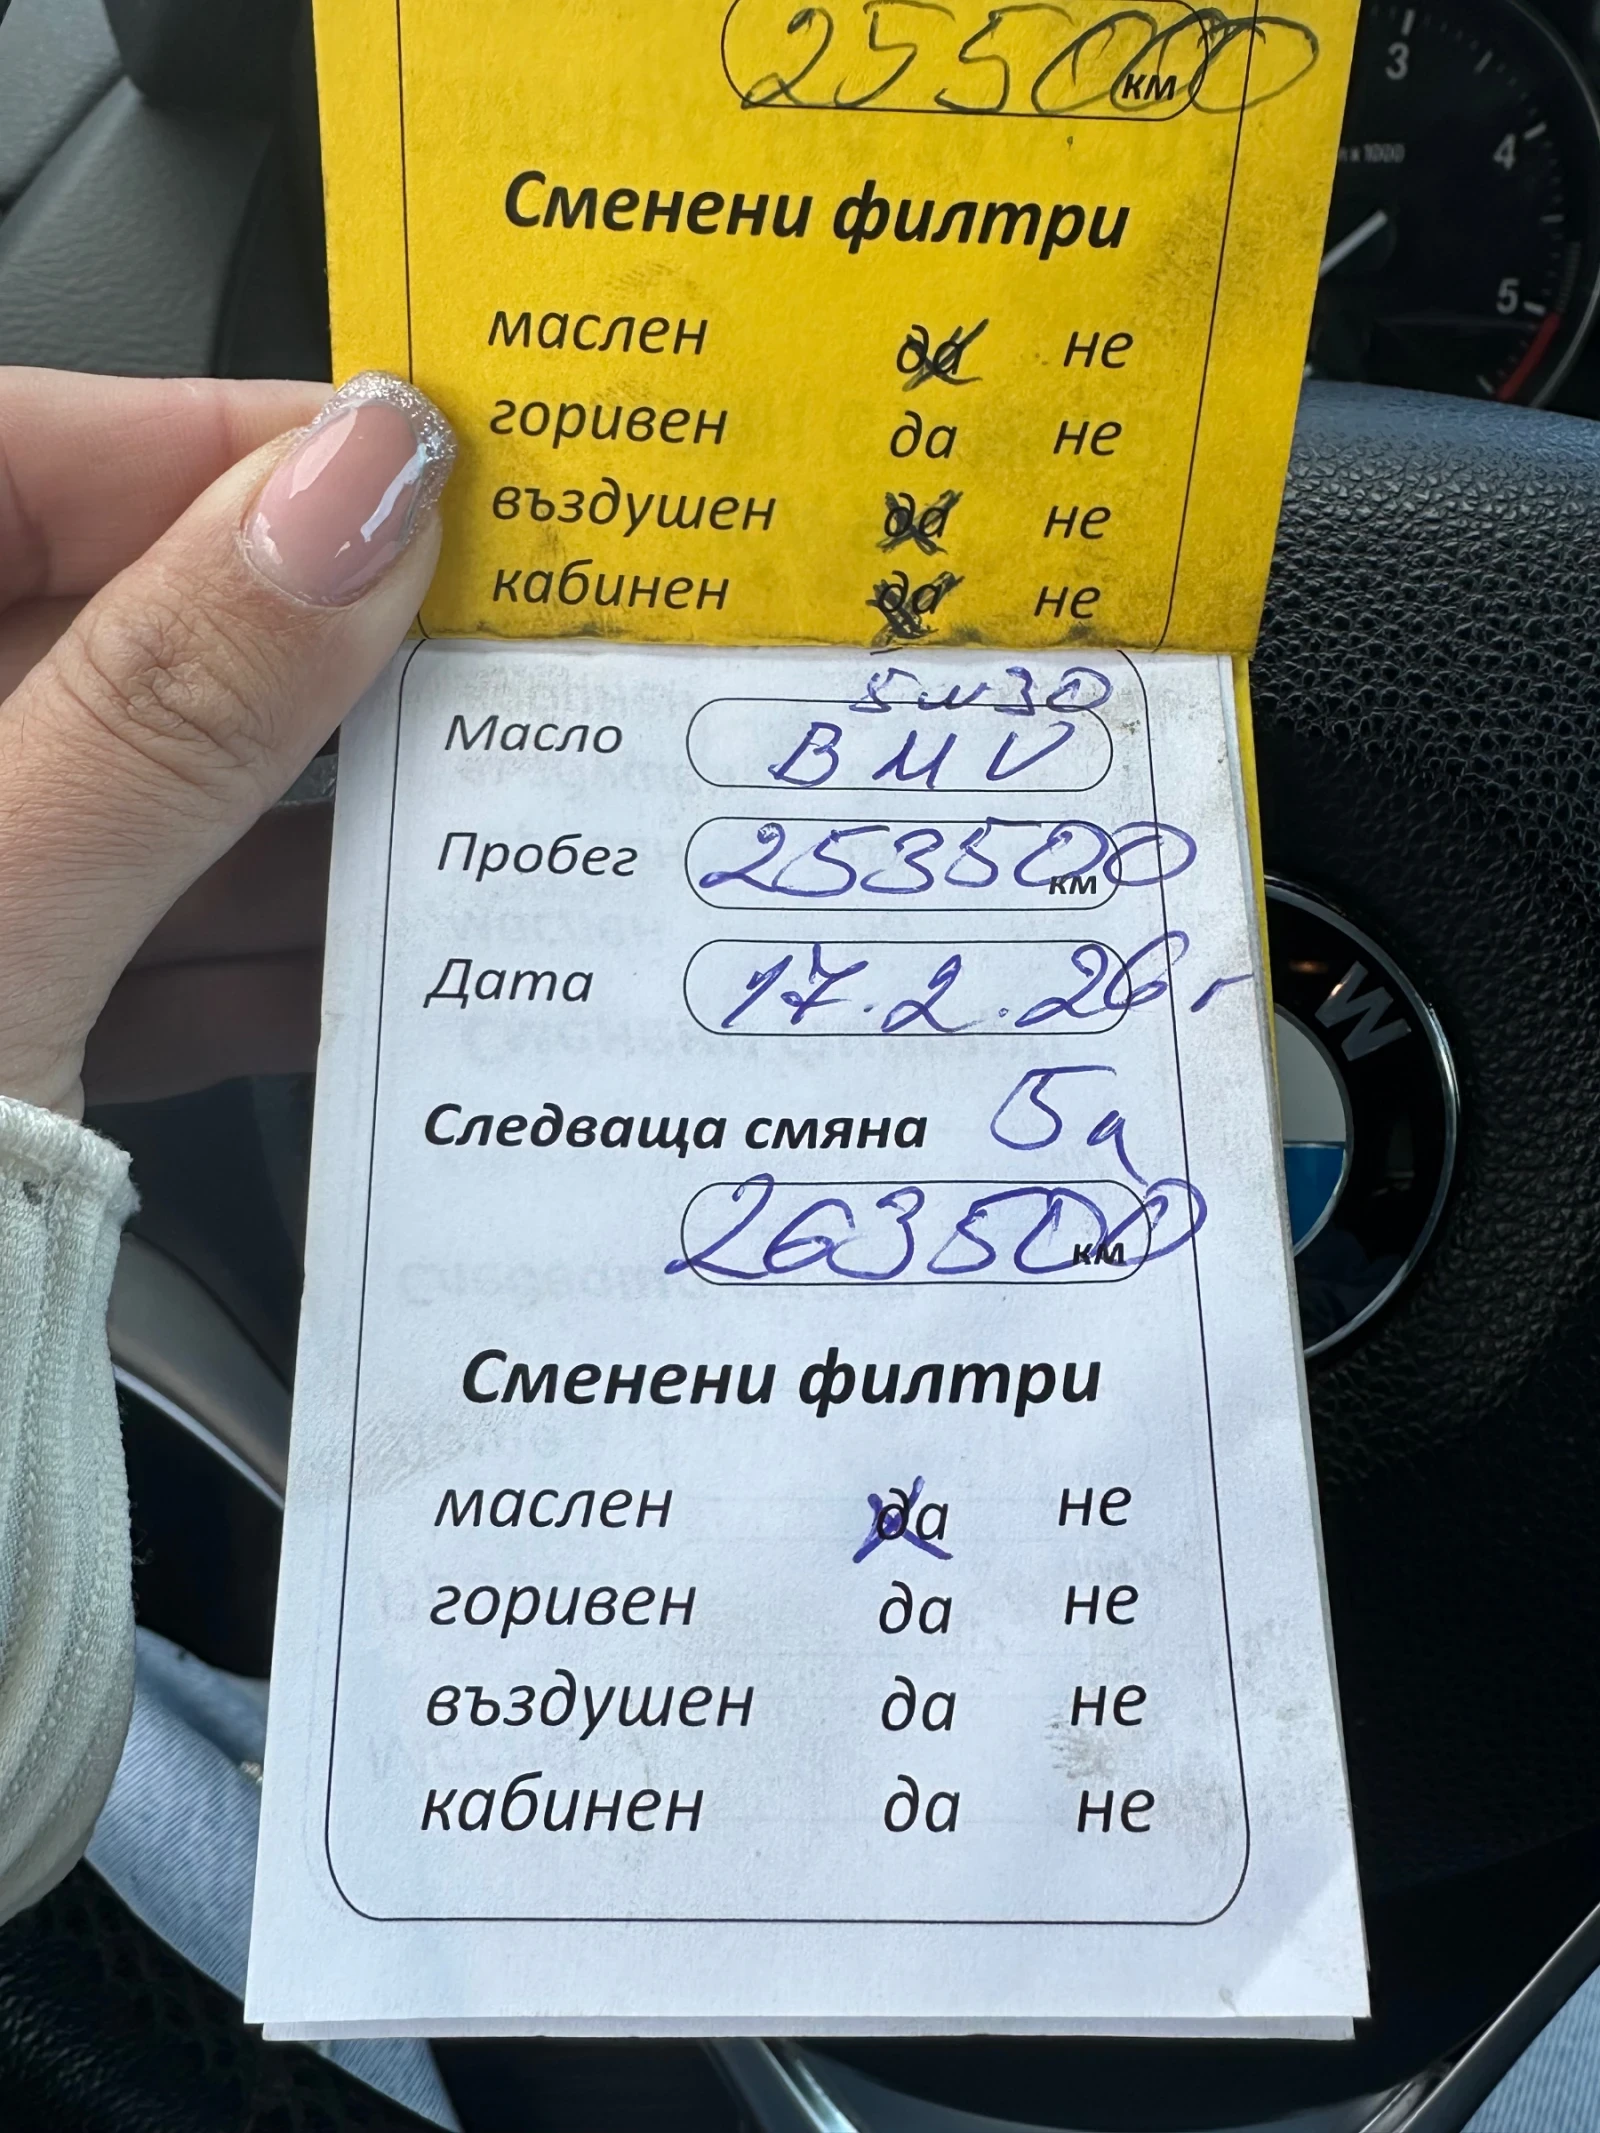 255000 км
Сменени филтри
маслен да не
горивен да не
въздушен да не
кабинен да не
5w30
Масло BMV
Пробег 253500 км
Дата 17.2.26г
Следваща смяна
263500 км
Сменени филтри
маслен да не
горивен да не
въздушен да не
кабинен да не
3
4
5
x 1000
W